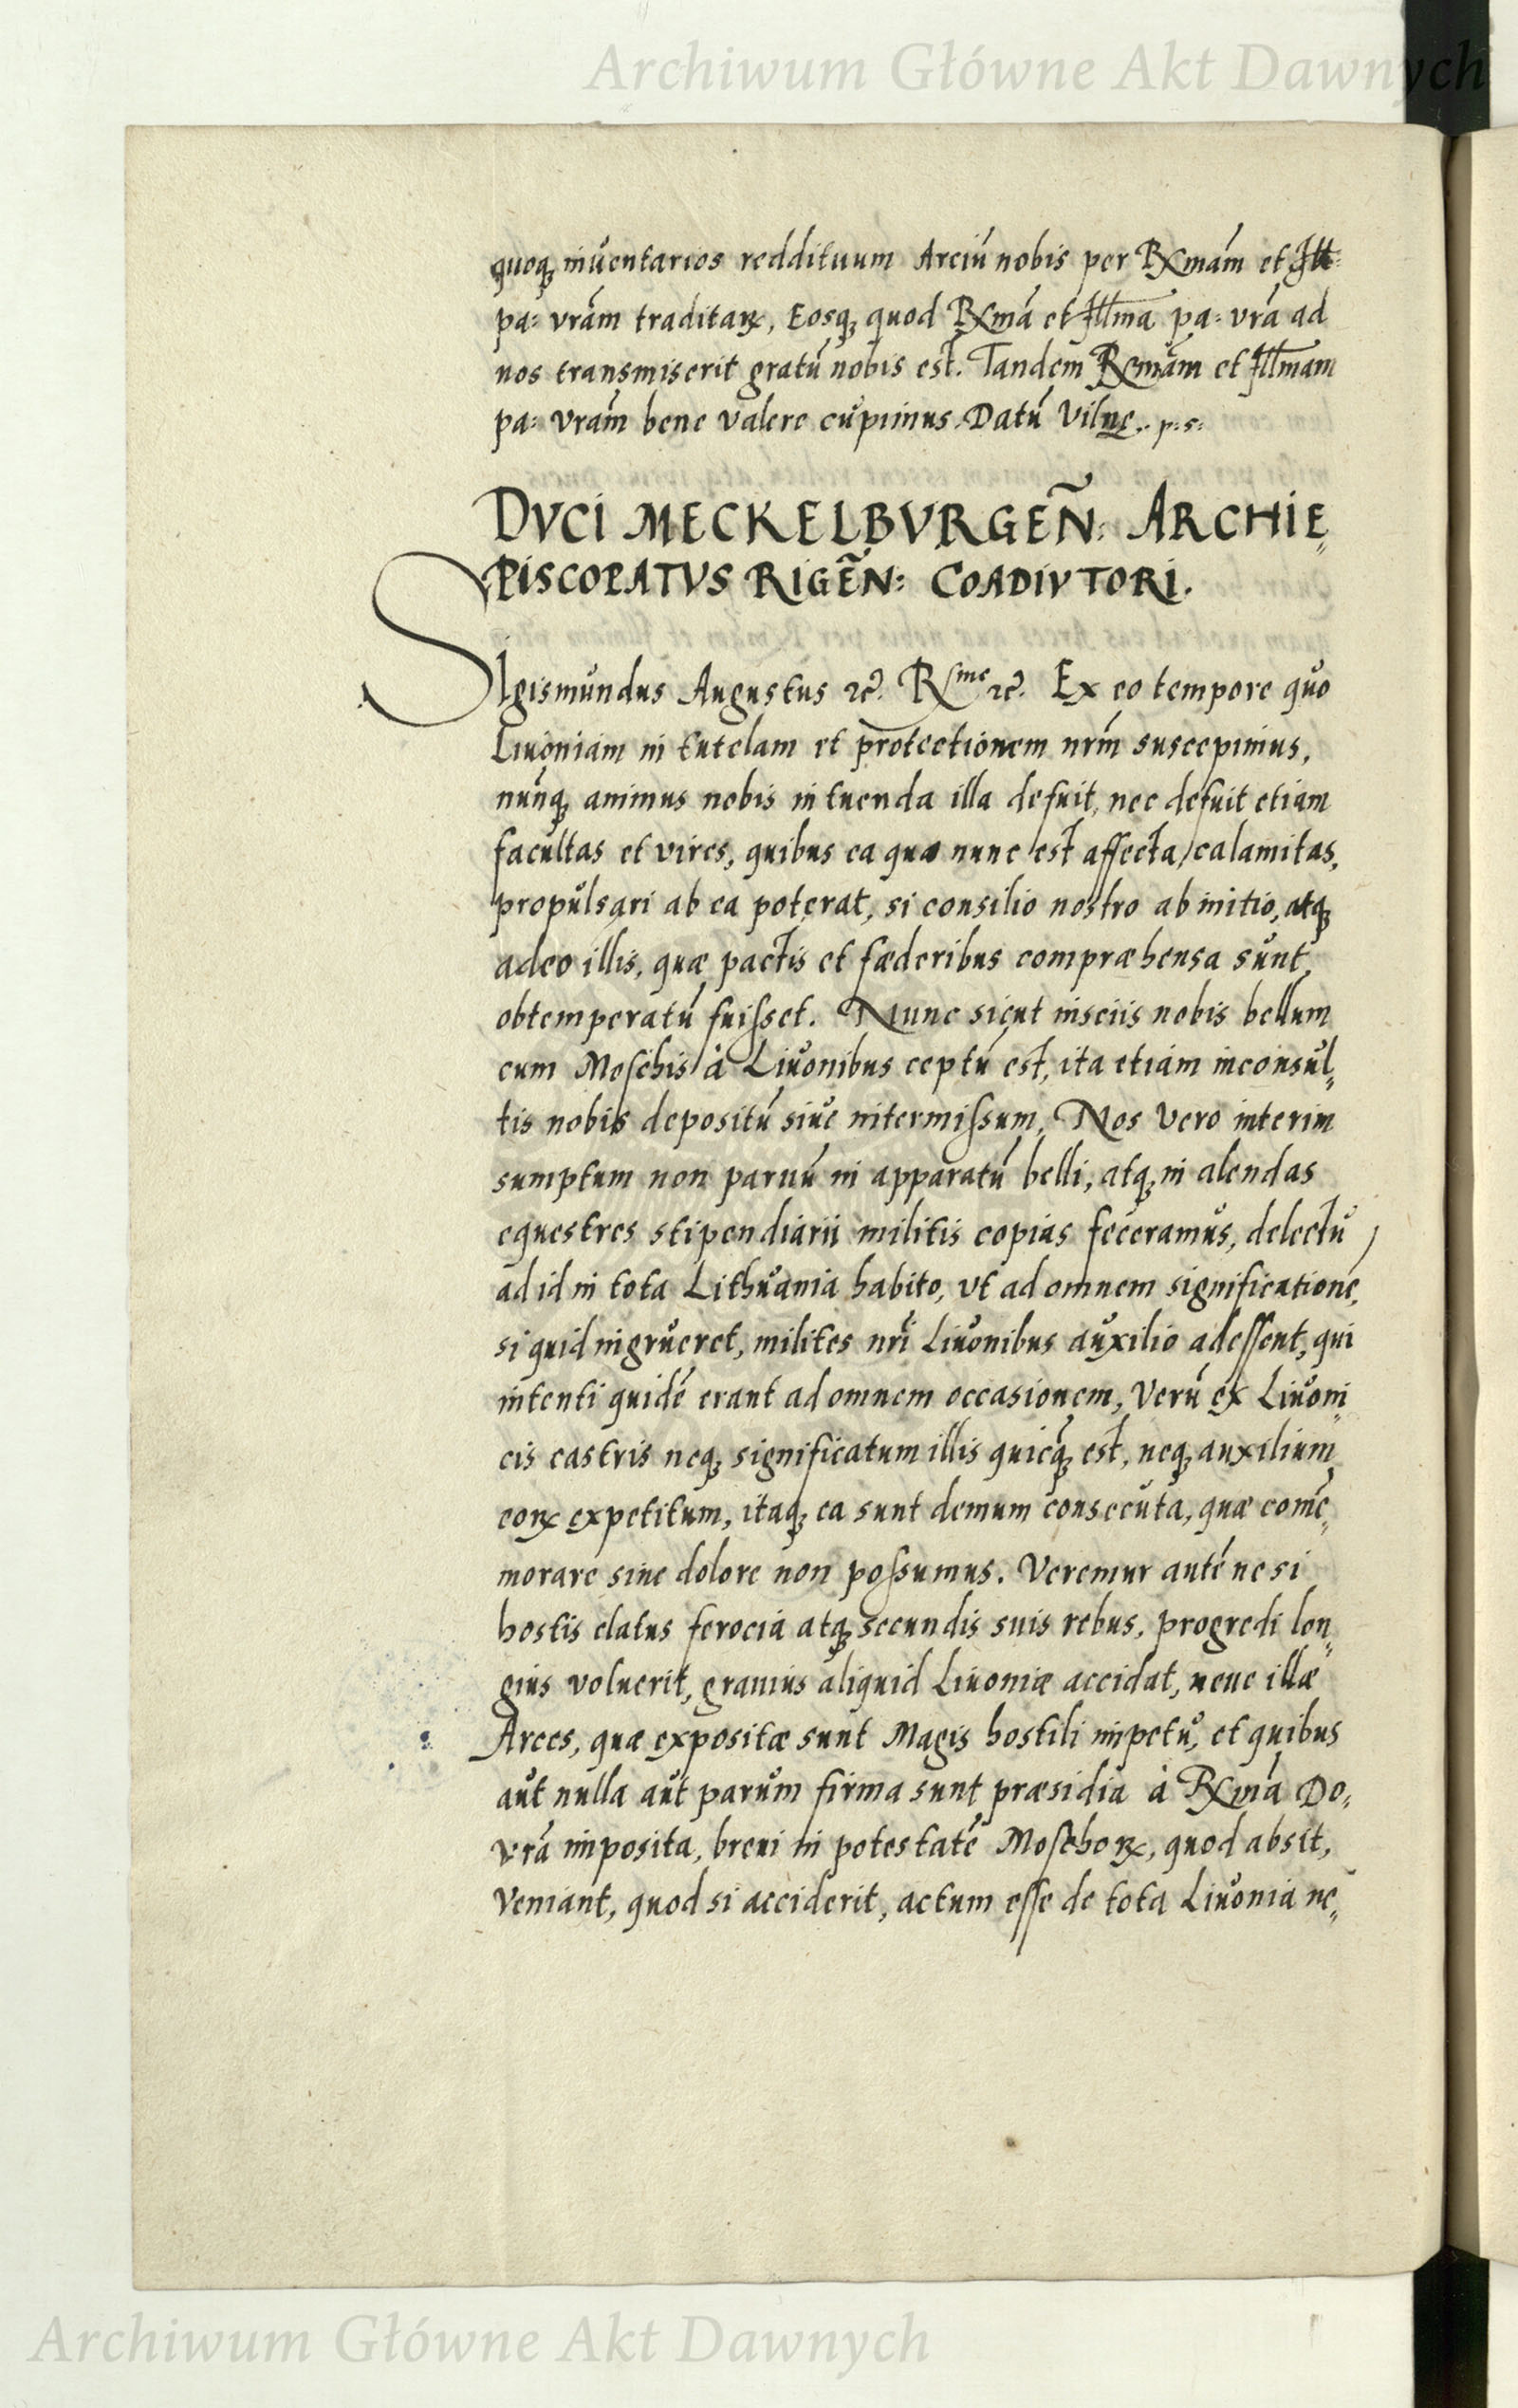 Archiwum Główne Akt Dawnych
quoq; inventarios reddituum Arciũ nobis per Rx̃mãm et Ill:
pa: vrãm traditarꝝ, Eosq; quod Rx̃mã et Illma pa: vrã ad
nos transmiserit gratũ nobis est. Tandem Rx̃mãm et Illmam
pa: vrãm bene valere cupimus. Datũ Vilnę. p: s:
DVCI MECKELBVRGEÑ: ARCHIE„
PISCOPATVS RIGEÑ: COADIVTORI.
SIgismundus Augustus ⁊c̃. Rme ⁊c̃. Ex eo tempore quo
Liuoniam in tutelam et protectionem nrãm suscepimus,
nunq; animus nobis in tuenda illa defuit, nec defuit etiam
facultas et vires, quibus ea quæ nunc est affecta, calamitas,
propulsari ab ea poterat, si consilio nostro ab initio, atq;
adeo illis, quæ pactis et fæderibus compræhensa sunt,
obtemperatũ fuisset. Nunc sicut insciis nobis bellum
cum Moschis à Liuonibus ceptũ est, ita etiam inconsul„
tis nobis depositũ siue intermissum, Nos vero interim
sumptum non paruũ in apparatũ belli, atq; in alendas
equestres stipendiarii militis copias feceramus, delectu
ad id in tota Lithuania habito, vt ad omnem significationẽ,
si quid ingrueret, milites nr̃i Liuonibus auxilio adessent, qui
intenti quidẽ erant ad omnem occasionem, Verũ ex Liuoni„
cis castris neq; significatum illis quicq̃; est, neq; auxilium
eorꝝ expetitum, itaq; ea sunt demum consecuta, quæ comẽ„
morare sine dolore non possumus. Veremur autẽ ne si
hostis elatus ferocia atq; secundis suis rebus, progredi lon„
gius voluerit, grauius aliquid Liuoniæ accidat, neue illæ
Arces, quæ expositæ sunt Magis hostili impetu, et quibus
aut nulla aut parum firma sunt præsidia à Rx̃mã Do:
vrã imposita, breui in potestatẽ Moschorꝝ, quod absit,
Veniant, quod si acciderit, actum esse de tota Liuonia ne„
Archiwum Główne Akt Dawnych